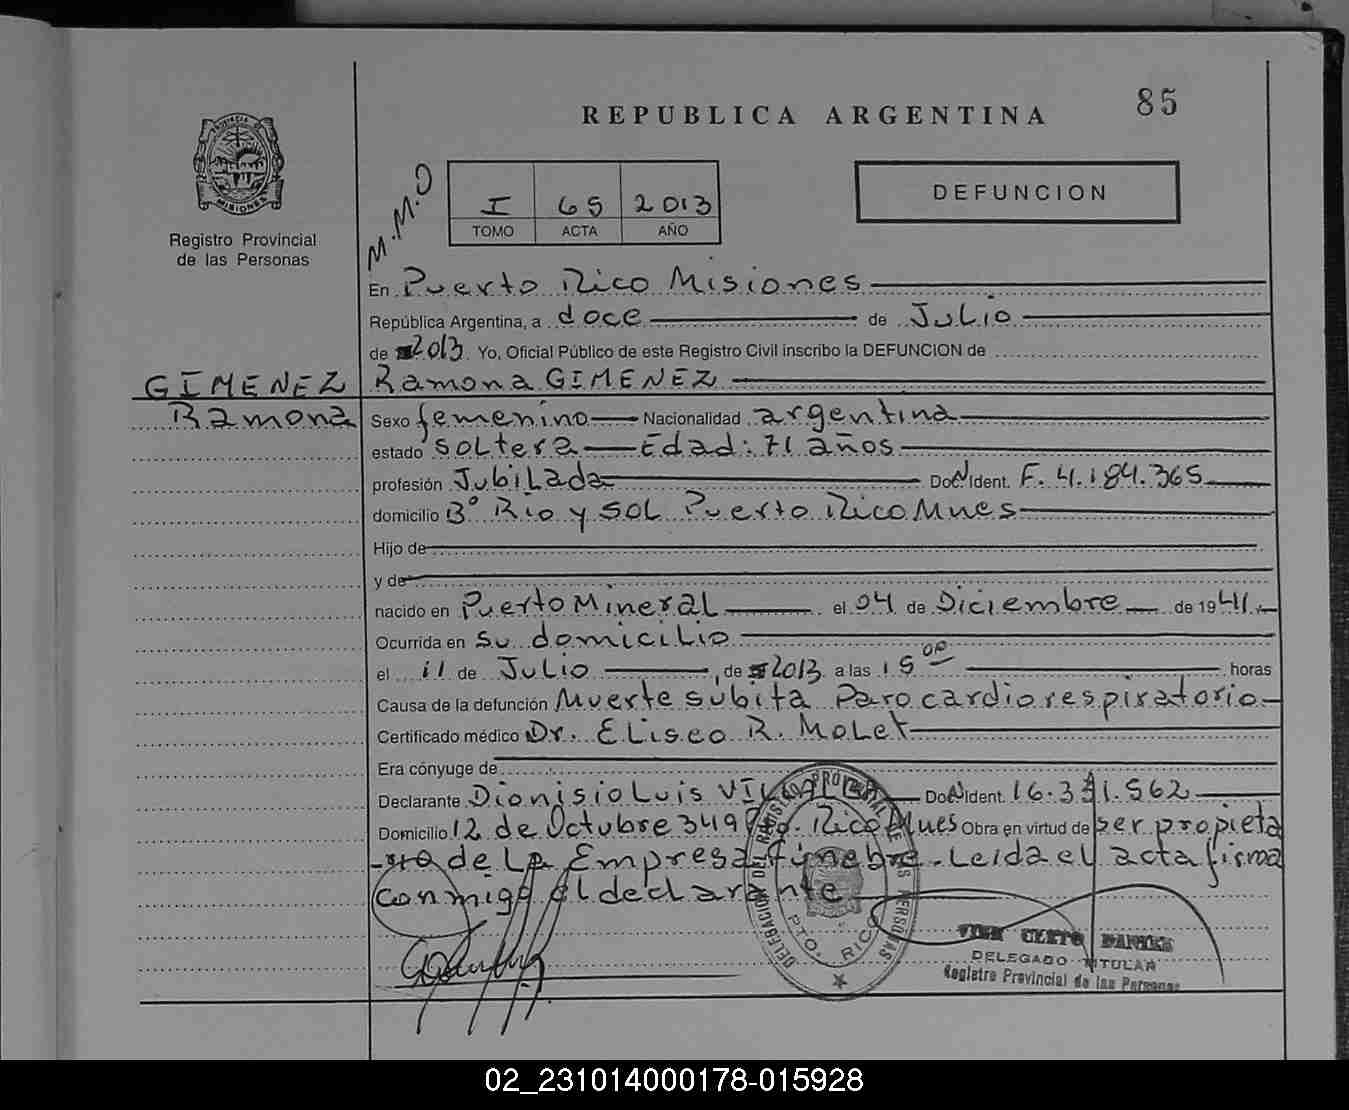 85
REPUBLICA ARGENTINA
PROVINCIA DE MISIONES
Registro Provincial
de las Personas
M.M.O
I 65 2013
TOMO ACTA AÑO
DEFUNCION
En Puerto Rico Misiones
República Argentina, a doce de Julio
de 2013 Yo, Oficial Público de este Registro Civil inscribo la DEFUNCION de
GIMENEZ Ramona GIMENEZ
Ramona Sexo femenino Nacionalidad argentina
estado soltera Edad: 71 años
profesión Jubilada Doc. Ident. F. 4.184.365
domicilio B° Rio y sol Puerto Rico Mnes
Hijo de
y de
nacido en Puerto Mineral el 04 de Diciembre de 1941
Ocurrida en su domicilio
el 11 de Julio , de 2013 a las 15 00 horas
Causa de la defunción Muerte subita Paro cardiorespiratorio
Certificado médico Dr. Eliseo R. Molet
Era cónyuge de
Declarante Dionisio Luis Doc. Ident. 16.331.562
Domicilio 12 de Octubre 349 Pto. Rico Mnes Obra en virtud de ser propieta
rio de La Empresa fúnebre. Leida el acta firma
conmigo el declarante
DELEGACION DEL REGISTRO PROVINCIAL DE LAS PERSONAS
PTO. RICO
DELEGADO TITULAR
Registro Provincial de las Personas
02_231014000178-015928